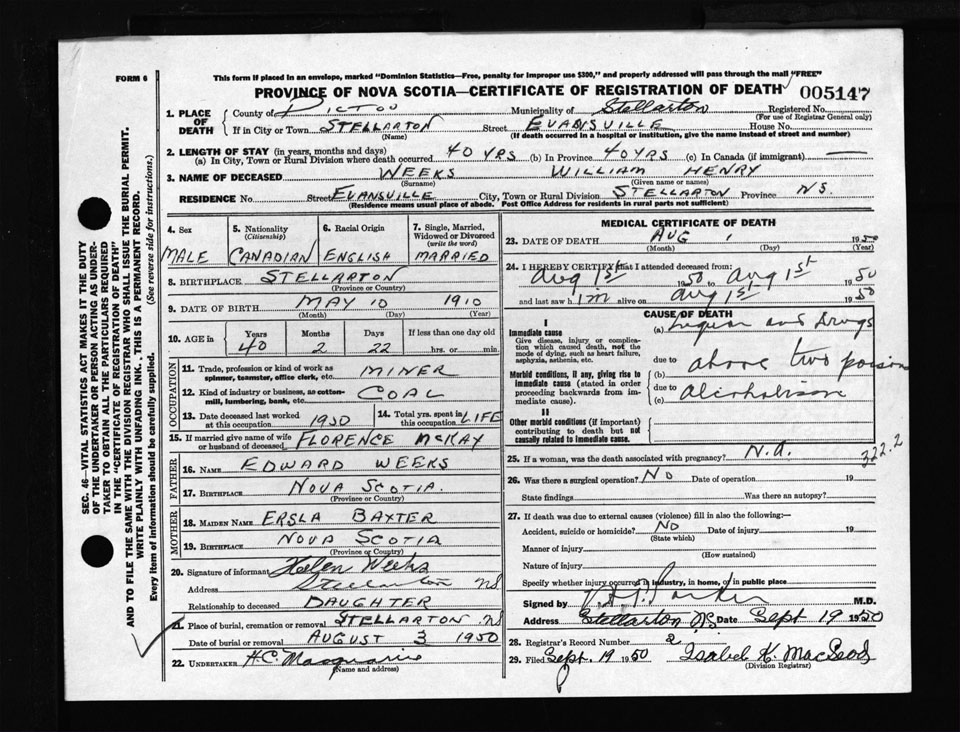 FORM 6
This form if placed in an envelope, marked "Dominion Statistics—Free, penalty for improper use $300," and properly addressed will pass through the mail "FREE"
PROVINCE OF NOVA SCOTIA—CERTIFICATE OF REGISTRATION OF DEATH 005147
1. PLACE OF DEATH County of Pictou Municipality of Stellarton Registered No.
(For use of Registrar General only)
If in City or Town STELLARTON Street EVANSVILLE House No.
(Name) (If death occurred in a hospital or institution, give the name instead of street and number)
2. LENGTH OF STAY (in years, months and days)
(a) In City, Town or Rural Division where death occurred 40 YRS (b) In Province 40 YRS (c) In Canada (if immigrant) —
3. NAME OF DECEASED WEEKS WILLIAM HENRY
(Surname) (Given name or names)
RESIDENCE No. Street EVANSVILLE City, Town or Rural Division STELLARTON Province N.S.
(Residence means usual place of abode. Post Office Address for residents in rural parts not sufficient)
4. Sex 5. Nationality (Citizenship) 6. Racial Origin 7. Single, Married, Widowed or Divorced (write the word)
MALE CANADIAN ENGLISH MARRIED
8. BIRTHPLACE STELLARTON
(Province or Country)
9. DATE OF BIRTH MAY 10 1910
(Month) (Day) (Year)
10. AGE in Years Months Days If less than one day old
40 2 22 hrs. or min.
OCCUPATION
11. Trade, profession or kind of work as spinner, teamster, office clerk, etc. MINER
12. Kind of industry or business, as cotton-mill, lumbering, bank, etc. COAL
13. Date deceased last worked at this occupation 1950 14. Total yrs. spent in this occupation LIFE
15. If married give name of wife or husband of deceased FLORENCE McKAY
FATHER
16. NAME EDWARD WEEKS
17. BIRTHPLACE NOVA SCOTIA.
(Province or Country)
MOTHER
18. MAIDEN NAME ERSLA BAXTER
19. BIRTHPLACE NOVA SCOTIA
(Province or Country)
20. Signature of informant Helen Weeks
Address Stellarton NS
Relationship to deceased DAUGHTER
21. Place of burial, cremation or removal STELLARTON NS
Date of burial or removal AUGUST 3 1950
22. UNDERTAKER H.C.
(Name and address)
MEDICAL CERTIFICATE OF DEATH
23. DATE OF DEATH AUG 1 1950
(Month) (Day) (Year)
24. I HEREBY CERTIFY that I attended deceased from:
Aug 1st 1950 to Aug 1st 1950
and last saw him alive on Aug 1st 1950
CAUSE OF DEATH
I
Immediate cause (a) Liquor and Drugs
Give disease, injury or complication which caused death, not the mode of dying, such as heart failure, asphyxia, asthenia, etc.
due to
Morbid conditions, if any, giving rise to immediate cause (stated in order proceeding backwards from immediate cause). (b) above two poison
due to
(c) Alcoholism
II
Other morbid conditions (if important) contributing to death but not causally related to immediate cause.
25. If a woman, was the death associated with pregnancy? N.A. 322.2
26. Was there a surgical operation? No Date of operation 19
State findings Was there an autopsy?
27. If death was due to external causes (violence) fill in also the following:
Accident, suicide or homicide? No Date of injury 19
(State which)
Manner of injury
(How sustained)
Nature of injury
Specify whether injury occurred in industry, in home, or in public place
Signed by M.D.
Address Stellarton NS Date Sept 19 1950
28. Registrar's Record Number 2
29. Filed Sept. 19 1950 Isabel K. MacLeod
(Division Registrar)
SEC. 46—VITAL STATISTICS ACT MAKES IT THE DUTY
OF THE UNDERTAKER OR PERSON ACTING AS UNDER-
TAKER TO OBTAIN ALL THE PARTICULARS REQUIRED
IN THE "CERTIFICATE OF REGISTRATION OF DEATH"
AND TO FILE THE SAME WITH THE DIVISION REGISTRAR WHO SHALL ISSUE THE BURIAL PERMIT.
WRITE PLAINLY WITH UNFADING INK. THIS IS A PERMANENT RECORD.
Every item of information should be carefully supplied. (See reverse side for instructions.)